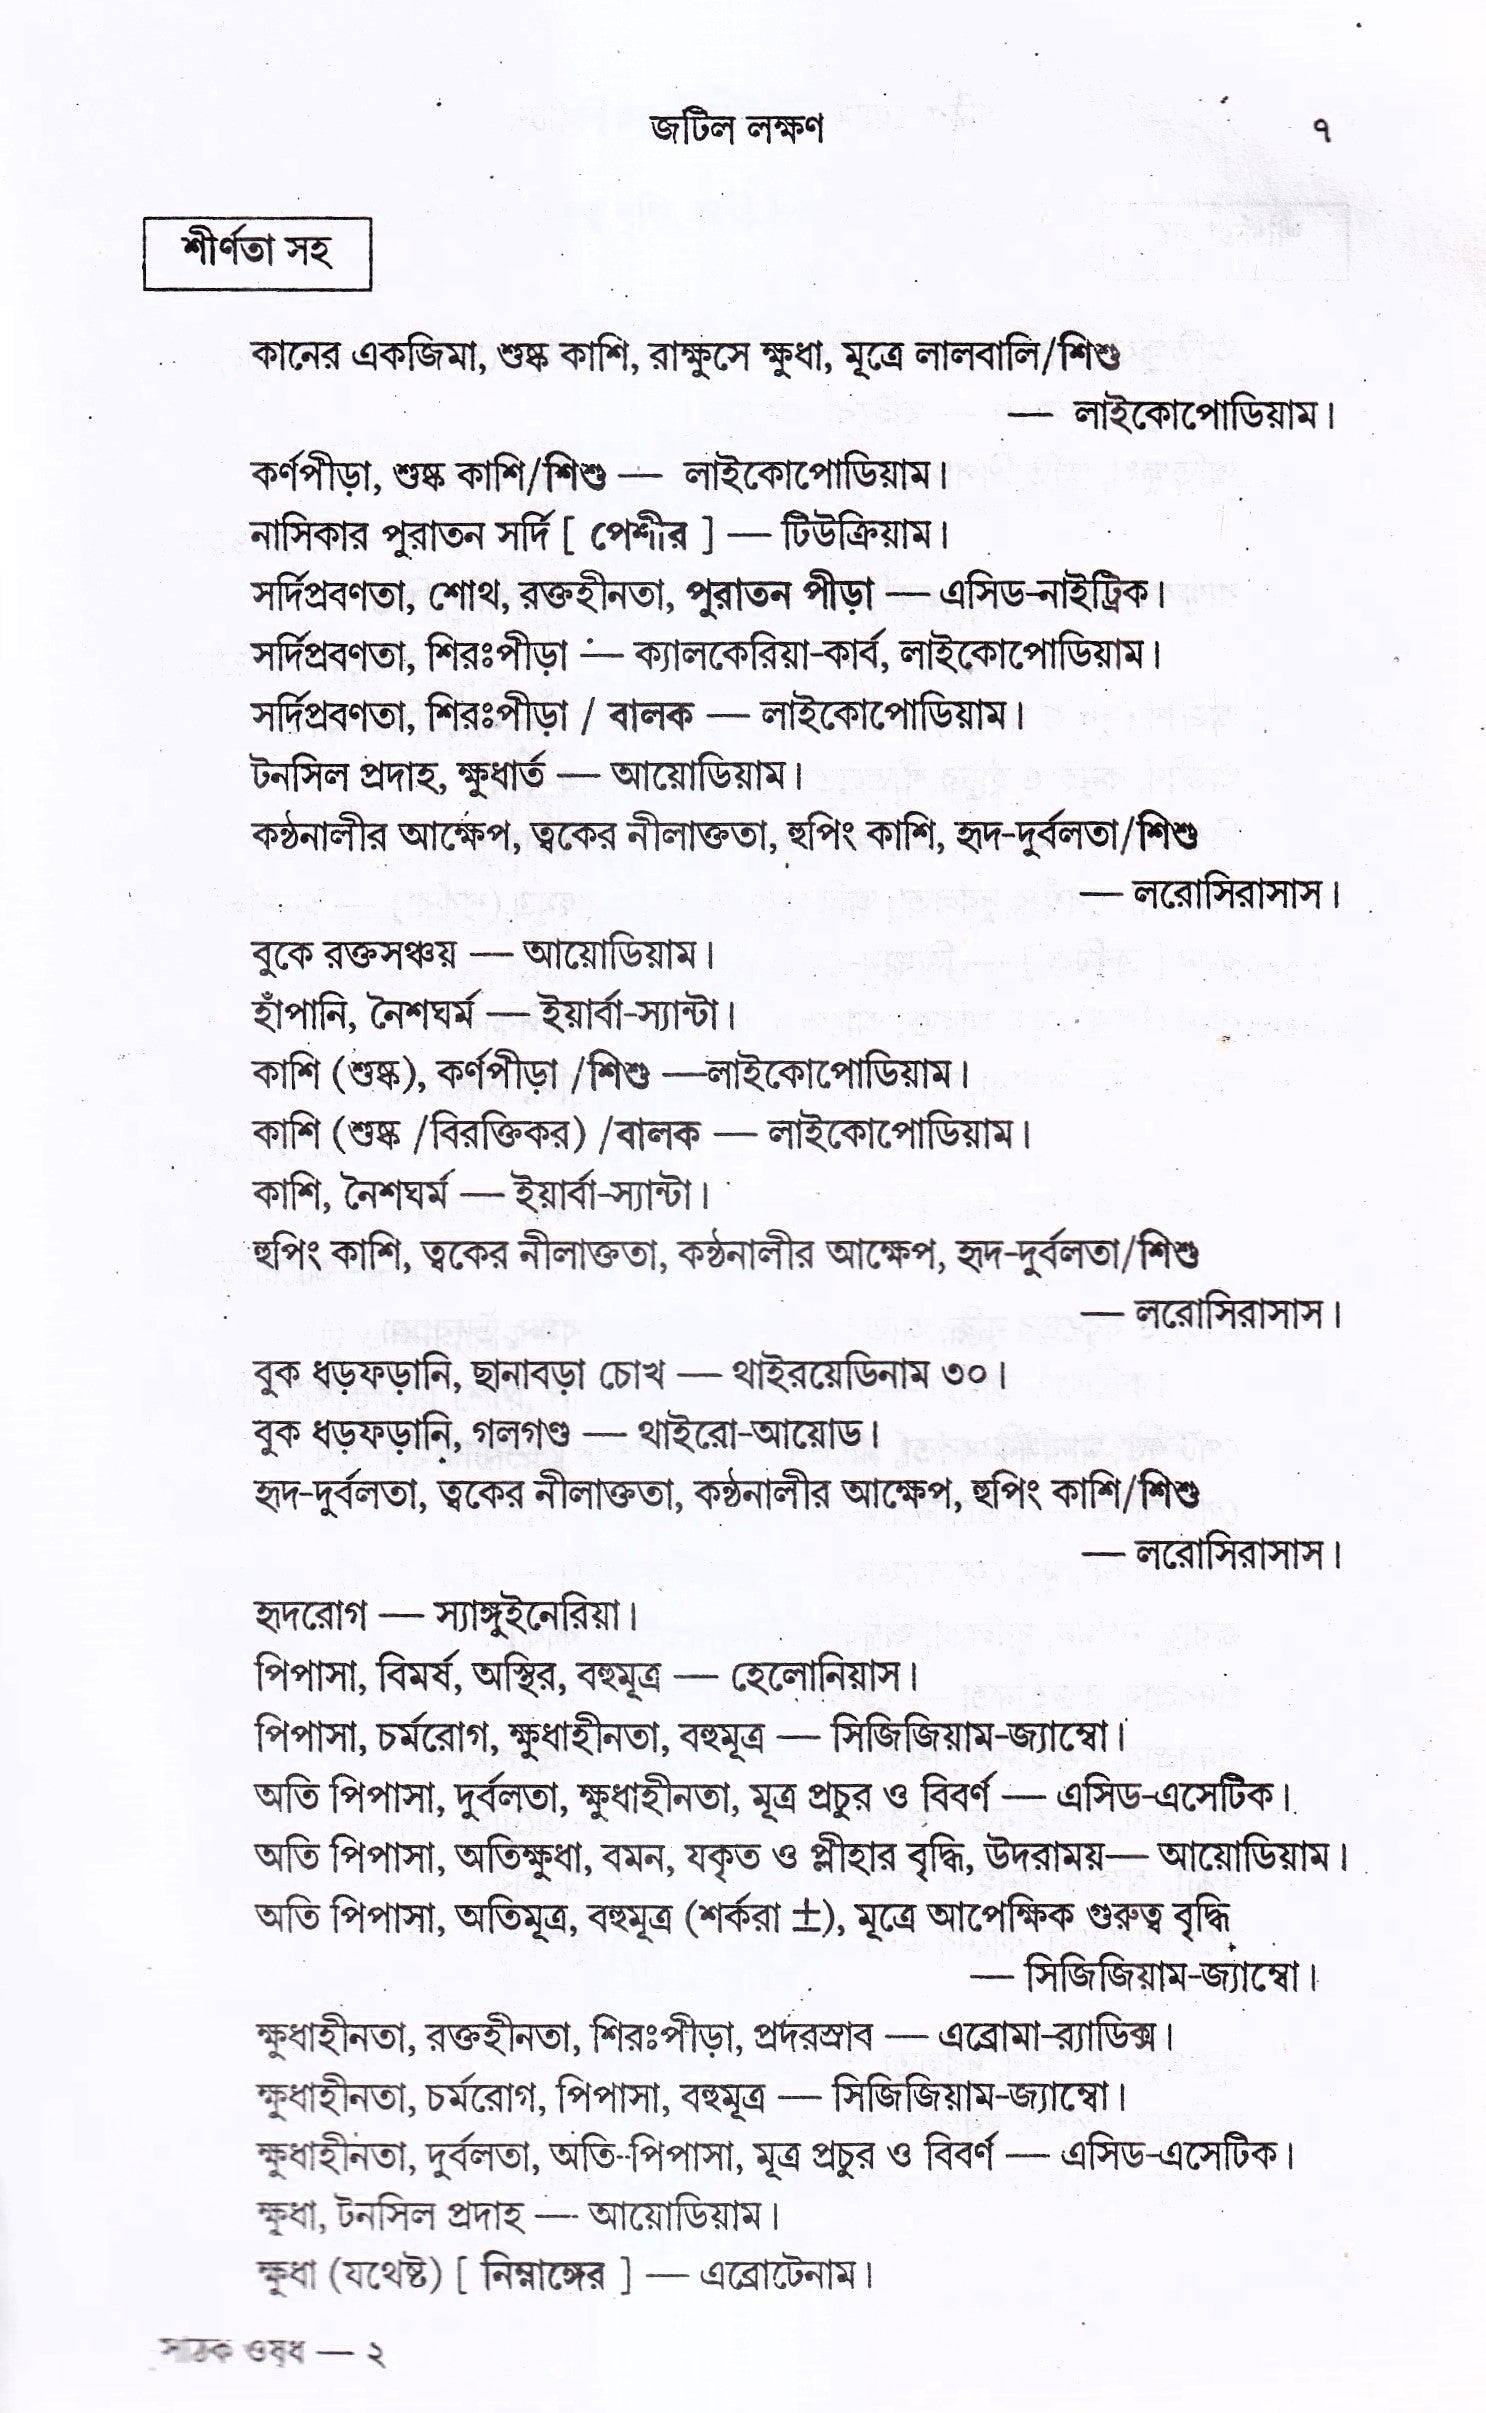 জটিল লক্ষণ ৭
শীর্ণতা সহ
কানের একজিমা, শুষ্ক কাশি, রাক্ষুসে ক্ষুধা, মূত্রে লালবালি/শিশু
— লাইকোপোডিয়াম।
কর্ণপীড়া, শুষ্ক কাশি/শিশু — লাইকোপোডিয়াম।
নাসিকার পুরাতন সর্দি [ পেশীর ] — টিউক্রিয়াম।
সর্দিপ্রবণতা, শোথ, রক্তহীনতা, পুরাতন পীড়া — এসিড-নাইট্রিক।
সর্দিপ্রবণতা, শিরঃপীড়া — ক্যালকেরিয়া-কার্ব, লাইকোপোডিয়াম।
সর্দিপ্রবণতা, শিরঃপীড়া / বালক — লাইকোপোডিয়াম।
টনসিল প্রদাহ, ক্ষুধার্ত — আয়োডিয়াম।
কন্ঠনালীর আক্ষেপ, ত্বকের নীলাক্ততা, হুপিং কাশি, হৃদ-দুর্বলতা/শিশু
— লরোসিরাসাস।
বুকে রক্তসঞ্চয় — আয়োডিয়াম।
হাঁপানি, নৈশঘর্ম — ইয়ার্বা-স্যান্টা।
কাশি (শুষ্ক), কর্ণপীড়া /শিশু —লাইকোপোডিয়াম।
কাশি (শুষ্ক /বিরক্তিকর) /বালক — লাইকোপোডিয়াম।
কাশি, নৈশঘর্ম — ইয়ার্বা-স্যান্টা।
হুপিং কাশি, ত্বকের নীলাক্ততা, কন্ঠনালীর আক্ষেপ, হৃদ-দুর্বলতা/শিশু
— লরোসিরাসাস।
বুক ধড়ফড়ানি, ছানাবড়া চোখ — থাইরয়েডিনাম ৩০।
বুক ধড়ফড়ানি, গলগণ্ড — থাইরো-আয়োড।
হৃদ-দুর্বলতা, ত্বকের নীলাক্ততা, কন্ঠনালীর আক্ষেপ, হুপিং কাশি/শিশু
— লরোসিরাসাস।
হৃদরোগ — স্যাঙ্গুইনেরিয়া।
পিপাসা, বিমর্ষ, অস্থির, বহুমূত্র — হেলোনিয়াস।
পিপাসা, চর্মরোগ, ক্ষুধাহীনতা, বহুমূত্র — সিজিজিয়াম-জ্যাম্বো।
অতি পিপাসা, দুর্বলতা, ক্ষুধাহীনতা, মূত্র প্রচুর ও বিবর্ণ — এসিড-এসেটিক।
অতি পিপাসা, অতিক্ষুধা, বমন, যকৃত ও প্লীহার বৃদ্ধি, উদরাময়— আয়োডিয়াম।
অতি পিপাসা, অতিমূত্র, বহুমূত্র (শর্করা ±), মূত্রে আপেক্ষিক গুরুত্ব বৃদ্ধি
— সিজিজিয়াম-জ্যাম্বো।
ক্ষুধাহীনতা, রক্তহীনতা, শিরঃপীড়া, প্রদরস্রাব — এব্রোমা-র‍্যাডিক্স।
ক্ষুধাহীনতা, চর্মরোগ, পিপাসা, বহুমূত্র — সিজিজিয়াম-জ্যাম্বো।
ক্ষুধাহীনতা, দুর্বলতা, অতি-পিপাসা, মূত্র প্রচুর ও বিবর্ণ — এসিড-এসেটিক।
ক্ষুধা, টনসিল প্রদাহ — আয়োডিয়াম।
ক্ষুধা (যথেষ্ট) [ নিম্নাঙ্গের ] — এব্রোটেনাম।
সঠিক ওষুধ — ২